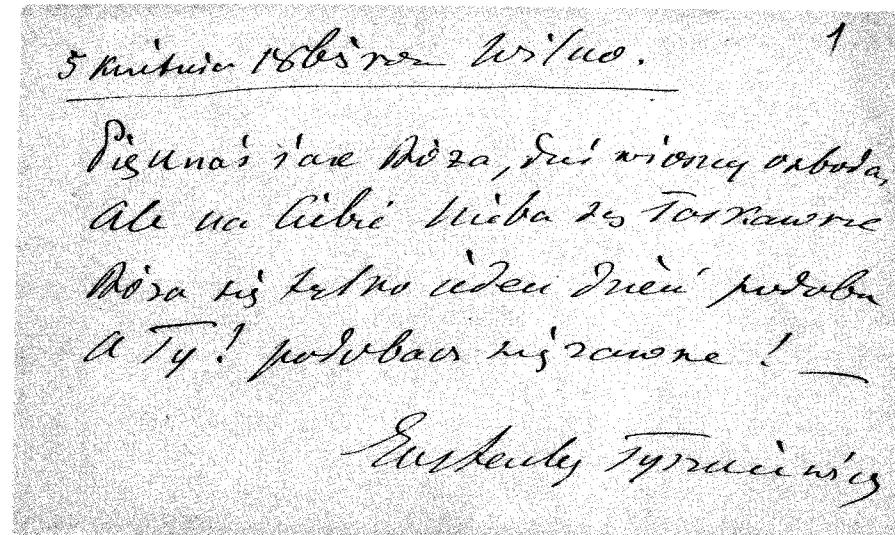 1
5 kwietnia 1865 roku Wilno.
Pięknaś jak Róża, dni wiosny ozdoba,
Ale na Ciebie nieba są łaskawsze
Róża się tylko jeden dzień podoba
A Ty! podobasz się zawsze!
Eustachy Tyszkiewicz